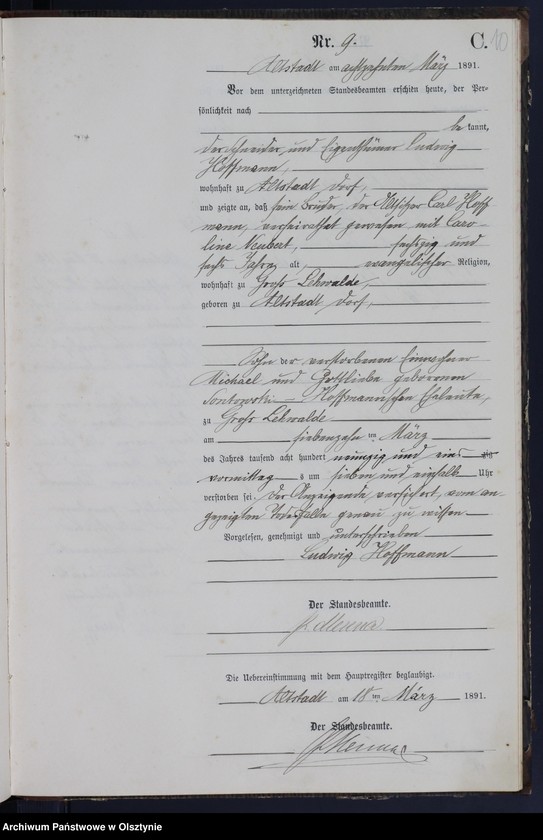 Nr. 9. C. 10
Altstadt am achtzehnten März 1891.
Vor dem unterzeichneten Standesbeamten erschien heute, der Per-
sönlichkeit nach
be kannt,
der Schneider und Eigenthümer Ludwig
Hoffmann,
wohnhaft zu Altstadt Dorf,
und zeigte an, daß sein Bruder, der Altsitzer Carl Hoff
mann, verheirathet gewesen mit Caro-
line Neubert, sechszig und
sechs Jahre alt, evangelischer Religion,
wohnhaft zu Groß Lehwalde,
geboren zu Altstadt Dorf,
Sohn der verstorbenen Einwohner
Michael und Gottliebe geborenen
Hoffmannschen Eheleute,
zu Groß Lehwalde
am siebenzehn ten März
des Jahres tausend acht hundert neunzig und eins
vormittags um sieben und einhalb Uhr
verstorben sei. Der Anzeigende versichert, vom an-
gezeigten Todesfalle genau zu wissen
Vorgelesen, genehmigt und unterschrieben
Ludwig Hoffmann
Der Standesbeamte.
Die Uebereinstimmung mit dem Hauptregister beglaubigt.
Altstadt am 18ten März 1891.
Der Standesbeamte.
Archiwum Państwowe w Olsztynie